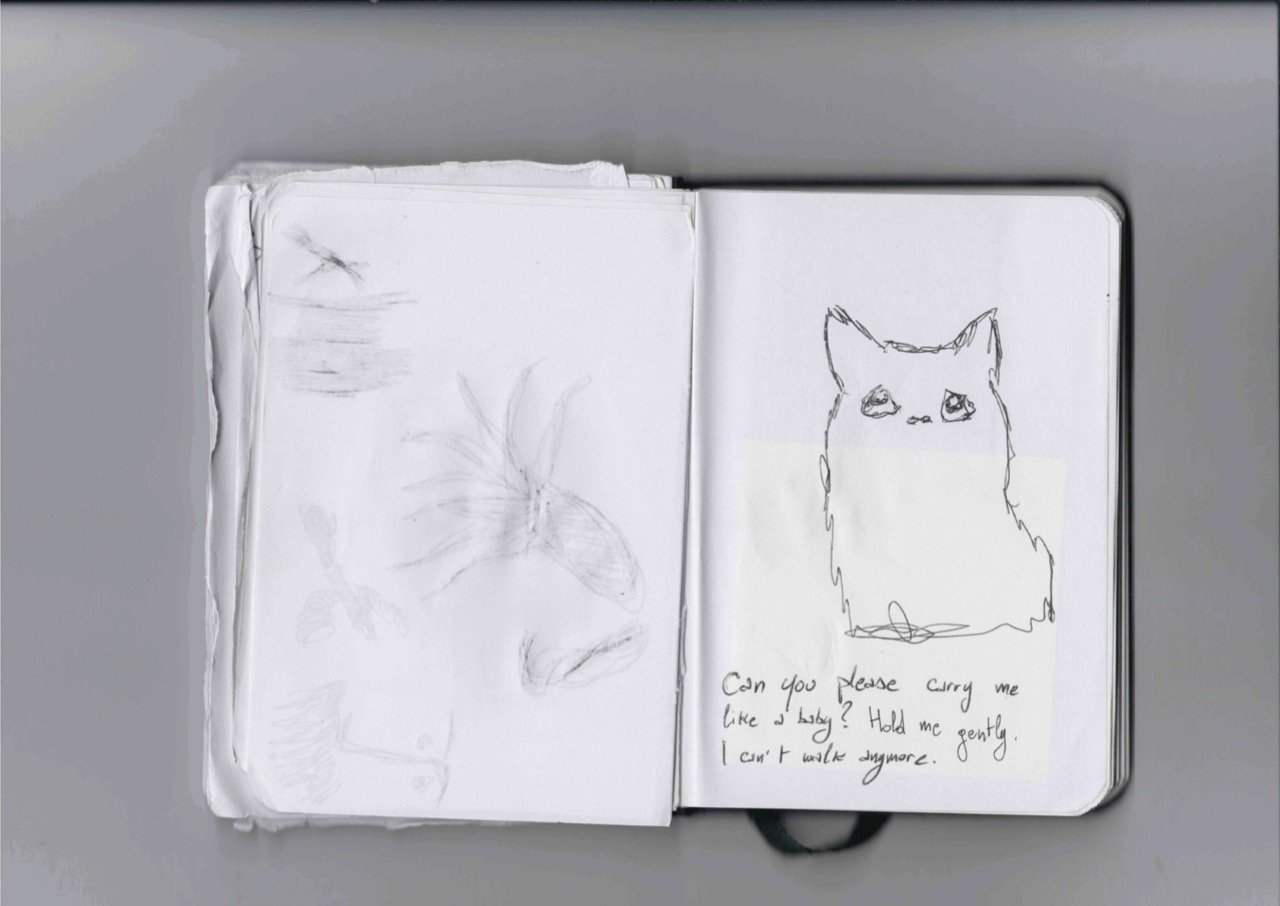 Can you please carry me
like a baby? Hold me gently.
I can't walk anymore.